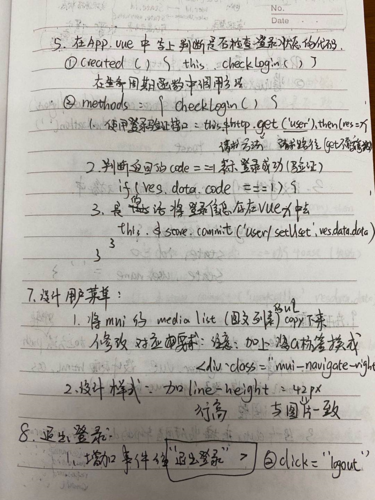 No.
Date
5. 在App.vue中加上判断是否检查登录状态的代码.
① created ( ) { this. checkLogin ( ) }
在生命周期函数中调用方法
② methods : { checkLogin ( ) {
1. 使用登录验证接口 this.$http.get('user').then(res=>{
请求方法 请求路径
2. 判断返回的code == 1 表示登录成功(验证)
if ( res. data. code === 1 ) {
3. 是的话将登录信息存在vuex中去
this. $ store. commit ('user/setUser', res.data.data)
}
}
7. 设计用户菜单:
1. 将mui的 media list (图文列表) copy下来
修改对应要求: 注意: 加上 将a标签换成
<div class = "mui-navigate-right
2. 设计样式: 加 line-height = 42px
行高 与图片一致
8. 退出登录:
1. 增加事件 给"退出登录" > @click = "logout"